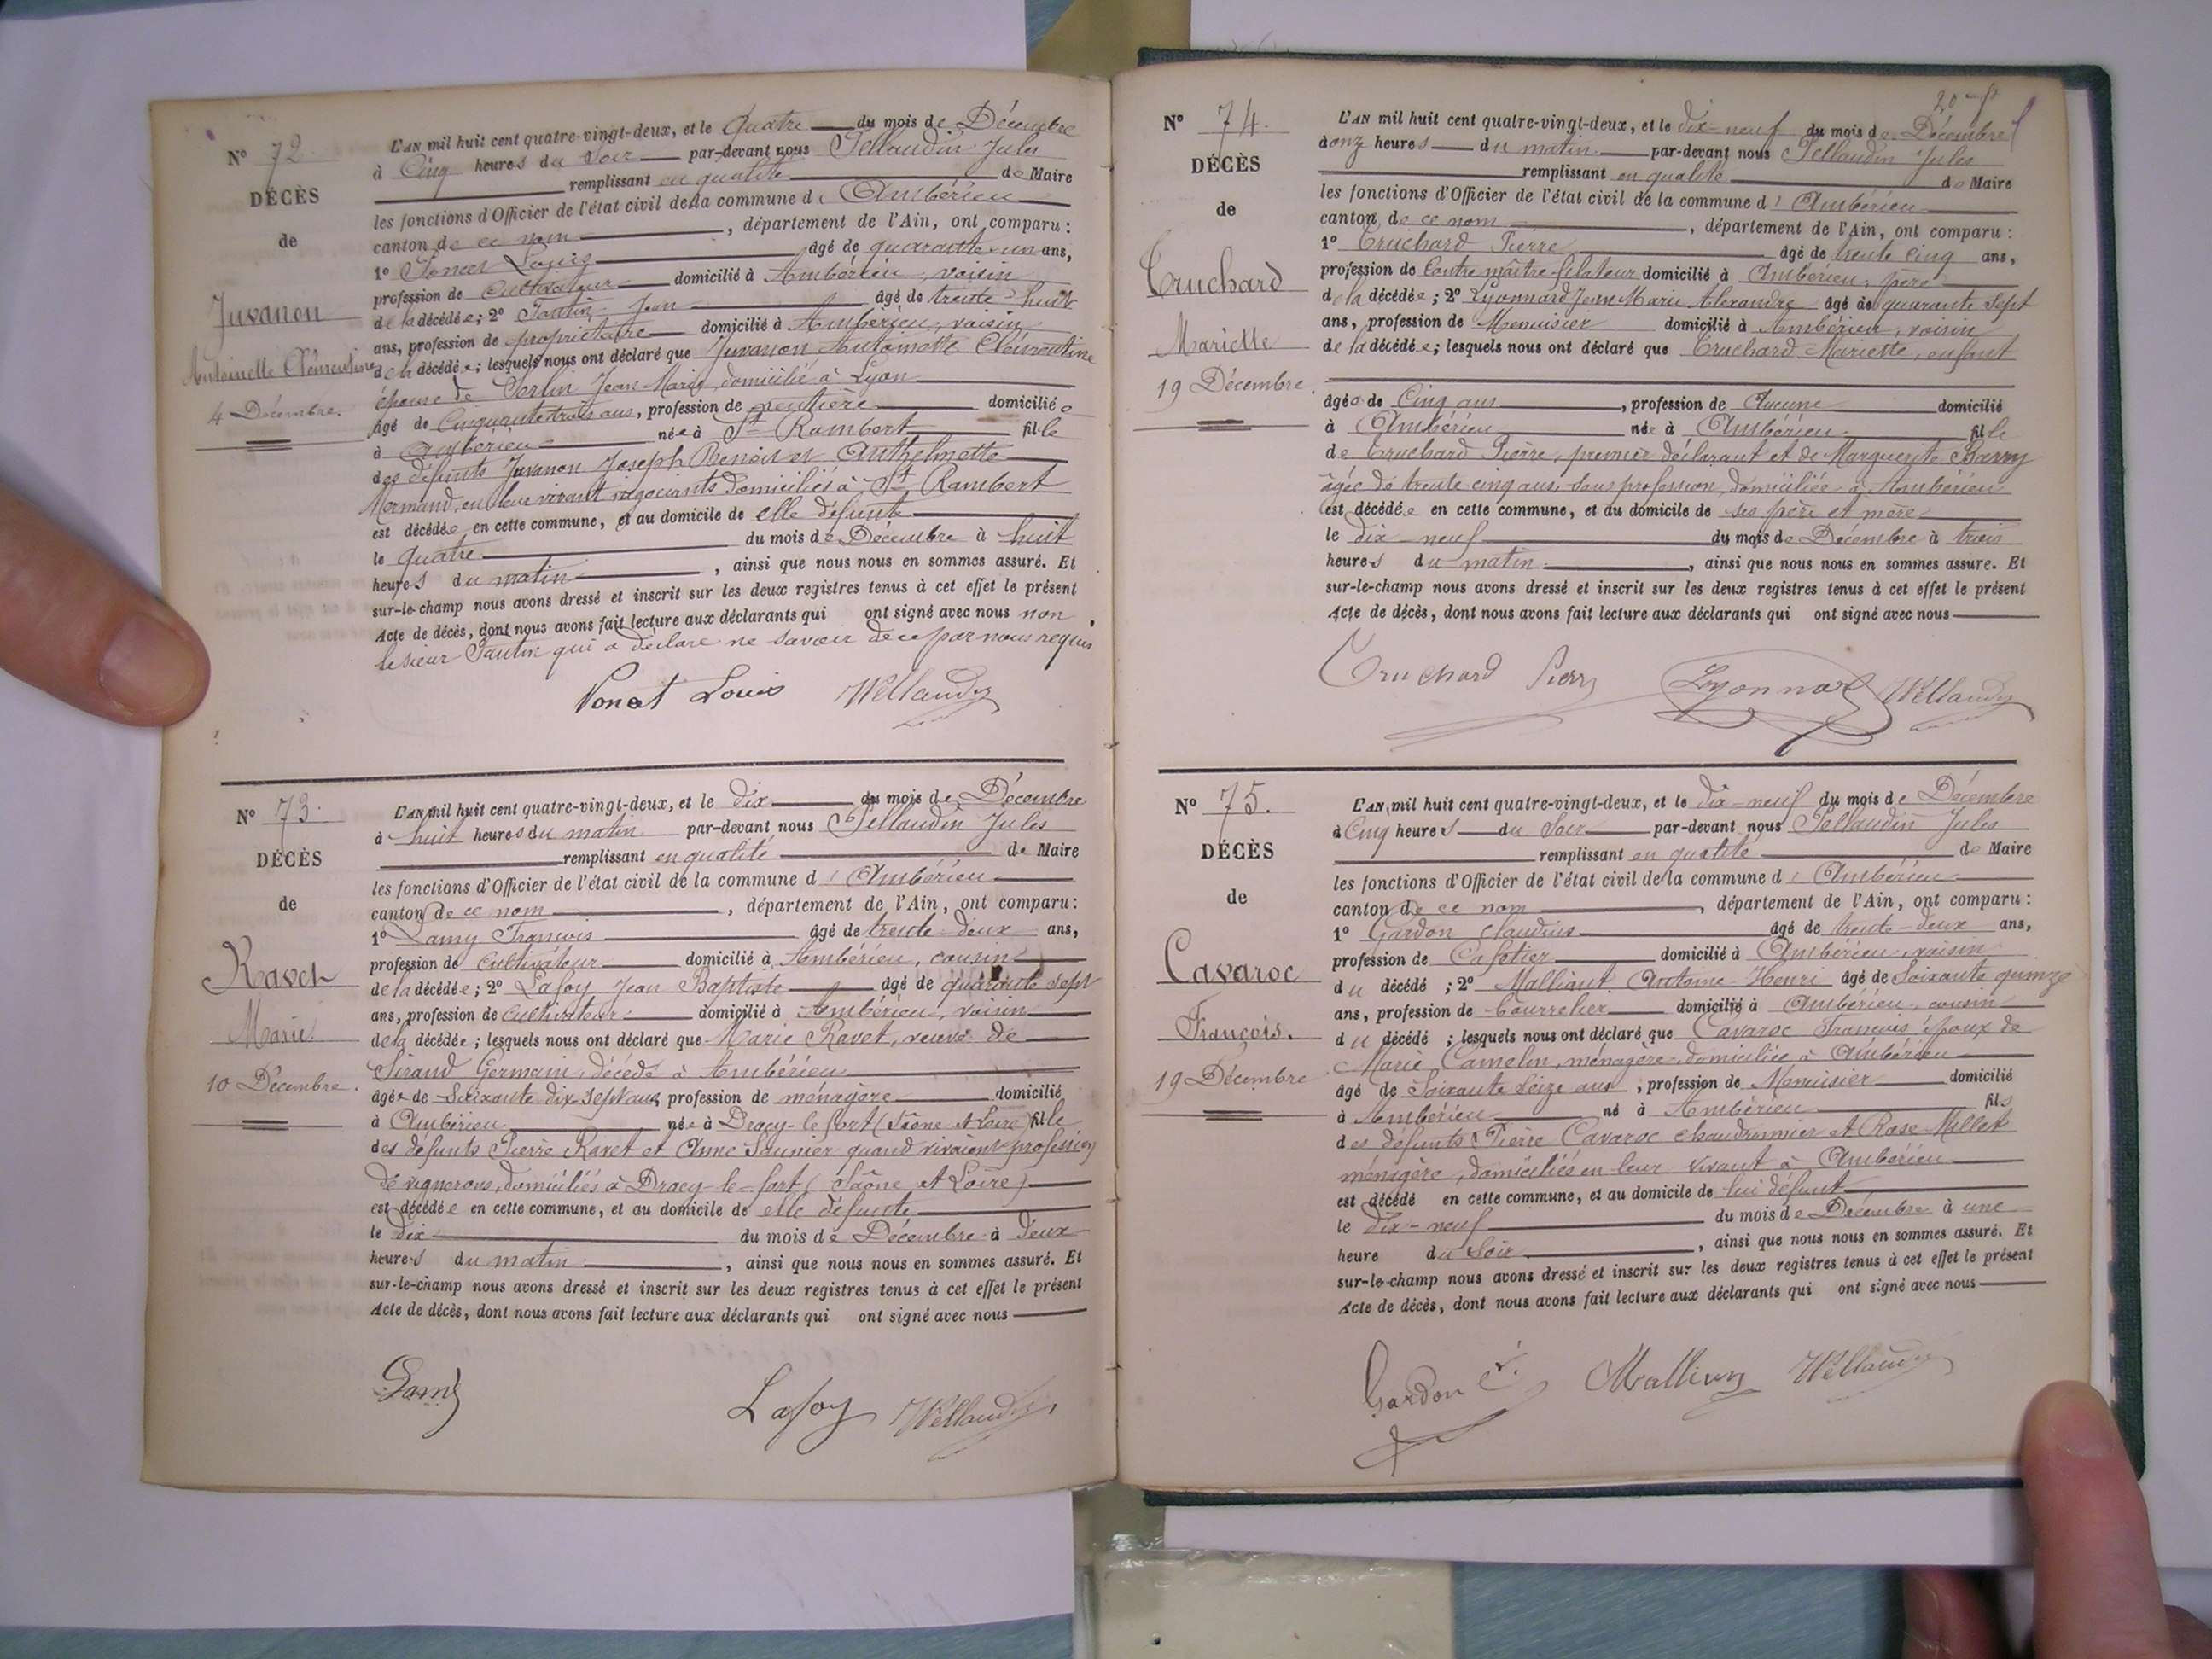 N° 72.
DÉCÈS
de
Juvanon
Antoinette Clémentine
4 Décembre.
L'AN mil huit cent quatre-vingt-deux, et le quatre du mois de Décembre
à Cinq heures du Soir par-devant nous Pellaudin Jules
remplissant en qualité de Maire
les fonctions d'Officier de l'état civil de la commune d' Ambérieu
canton de ce nom, département de l'Ain, ont comparu :
1° Poncet Louis âgé de quarante-un ans,
profession de Cultivateur domicilié à Ambérieu, voisin
de la décédée ; 2° Tantin Jean âgé de trente-huit
ans, profession de propriétaire domicilié à Ambérieu, voisin
de la décédée ; lesquels nous ont déclaré que Juvanon Antoinette Clémentine
épouse de Serlin Jean Marie, domicilié à Lyon
âgé de Cinquante trois ans, profession de rentière domiciliée
à Ambérieu née à St Rambert fille
des défunts Juvanon Joseph Benoît et Anthelmette
Mermand, en leur vivant négociants domiciliés à St Rambert
est décédée en cette commune, et au domicile de elle défunte
le quatre du mois de Décembre à huit
heures du matin, ainsi que nous nous en sommes assuré. Et
sur-le-champ nous avons dressé et inscrit sur les deux registres tenus à cet effet le présent
Acte de décès, dont nous avons fait lecture aux déclarants qui ont signé avec nous non
le sieur Tantin qui a déclaré ne savoir de ce par nous requis
Poncet Louis Pellaudin
N° 73.
DÉCÈS
de
Ravet
Marie
10 Décembre.
L'AN mil huit cent quatre-vingt-deux, et le dix du mois de Décembre
à huit heures du matin par-devant nous Pellaudin Jules
remplissant en qualité de Maire
les fonctions d'Officier de l'état civil de la commune d' Ambérieu
canton de ce nom, département de l'Ain, ont comparu :
1° Lamy François âgé de trente-deux ans,
profession de Cultivateur domicilié à Ambérieu, cousin
de la décédée ; 2° Lafoy Jean Baptiste âgé de quarante sept
ans, profession de Cultivateur domicilié à Ambérieu, voisin
de la décédée ; lesquels nous ont déclaré que Marie Ravet, veuve de
Sirand Germain, décédé à Ambérieu
âgée de Soixante dix sept ans, profession de ménagère domicilié
à Ambérieu née à Dracy-le-fort (Saône et Loire) fille
des défunts Pierre Ravet et Anne Saunier quand vivaient profession
de vignerons, domiciliés à Dracy-le-fort (Saône et Loire)
est décédée en cette commune, et au domicile de elle défunte
le dix du mois de Décembre à deux
heures du matin, ainsi que nous nous en sommes assuré. Et
sur-le-champ nous avons dressé et inscrit sur les deux registres tenus à cet effet le présent
Acte de décès, dont nous avons fait lecture aux déclarants qui ont signé avec nous
Lamy
Lafoy Pellaudin
N° 74.
DÉCÈS
de
Truchard
Mariette
19 Décembre.
L'AN mil huit cent quatre-vingt-deux, et le dix-neuf du mois de Décembre
à onz heures du matin par-devant nous Pellaudin Jules
remplissant en qualité de Maire
les fonctions d'Officier de l'état civil de la commune d' Ambérieu
canton de ce nom, département de l'Ain, ont comparu :
1° Truchard Pierre âgé de trente cinq ans,
profession de Contre maître filateur domicilié à Ambérieu, père
de la décédée ; 2° Lyonnard Jean Marie Alexandre âgé de quarante sept
ans, profession de Menuisier domicilié à Ambérieu, voisin
de la décédée ; lesquels nous ont déclaré que Truchard Mariette, enfant
âgée de Cinq ans, profession de Aucune domicilié
à Ambérieu née à Ambérieu fille
de Truchard Pierre, premier déclarant et de Marguerite Barry
âgée de trente cinq ans, sans profession, domiciliée à Ambérieu
est décédée en cette commune, et au domicile de ses père et mère
le dix neuf du mois de Décembre à trois
heures du matin, ainsi que nous nous en sommes assuré. Et
sur-le-champ nous avons dressé et inscrit sur les deux registres tenus à cet effet le présent
Acte de décès, dont nous avons fait lecture aux déclarants qui ont signé avec nous
Truchard Pierre Lyonnard Pellaudin
N° 75.
DÉCÈS
de
Cavaroc
François.
19 Décembre
L'AN mil huit cent quatre-vingt-deux, et le dix-neuf du mois de Décembre
à Cinq heures du Soir par-devant nous Pellaudin Jules
remplissant en qualité de Maire
les fonctions d'Officier de l'état civil de la commune d' Ambérieu
canton de ce nom, département de l'Ain, ont comparu :
1° Gardon Claudius âgé de trente-deux ans,
profession de Cafetier domicilié à Ambérieu, voisin
du décédé ; 2° Malliant Antoine Henri âgé de Soixante quinze
ans, profession de bourrelier domicilié à Ambérieu, cousin
du décédé ; lesquels nous ont déclaré que Cavaroc François époux de
Marie Camelin, ménagère, domiciliée à Ambérieu
âgé de Soixante Seize ans, profession de Menuisier domicilié
à Ambérieu né à Ambérieu fils
des défunts Pierre Cavaroc chaudronnier et Rose Millet
ménagère, domiciliés en leur vivant à Ambérieu
est décédé en cette commune, et au domicile de lui défunt
le dix-neuf du mois de Décembre à une
heure du Soir, ainsi que nous nous en sommes assuré. Et
sur-le-champ nous avons dressé et inscrit sur les deux registres tenus à cet effet le présent
Acte de décès, dont nous avons fait lecture aux déclarants qui ont signé avec nous
Gardon Cl. Pellaudin